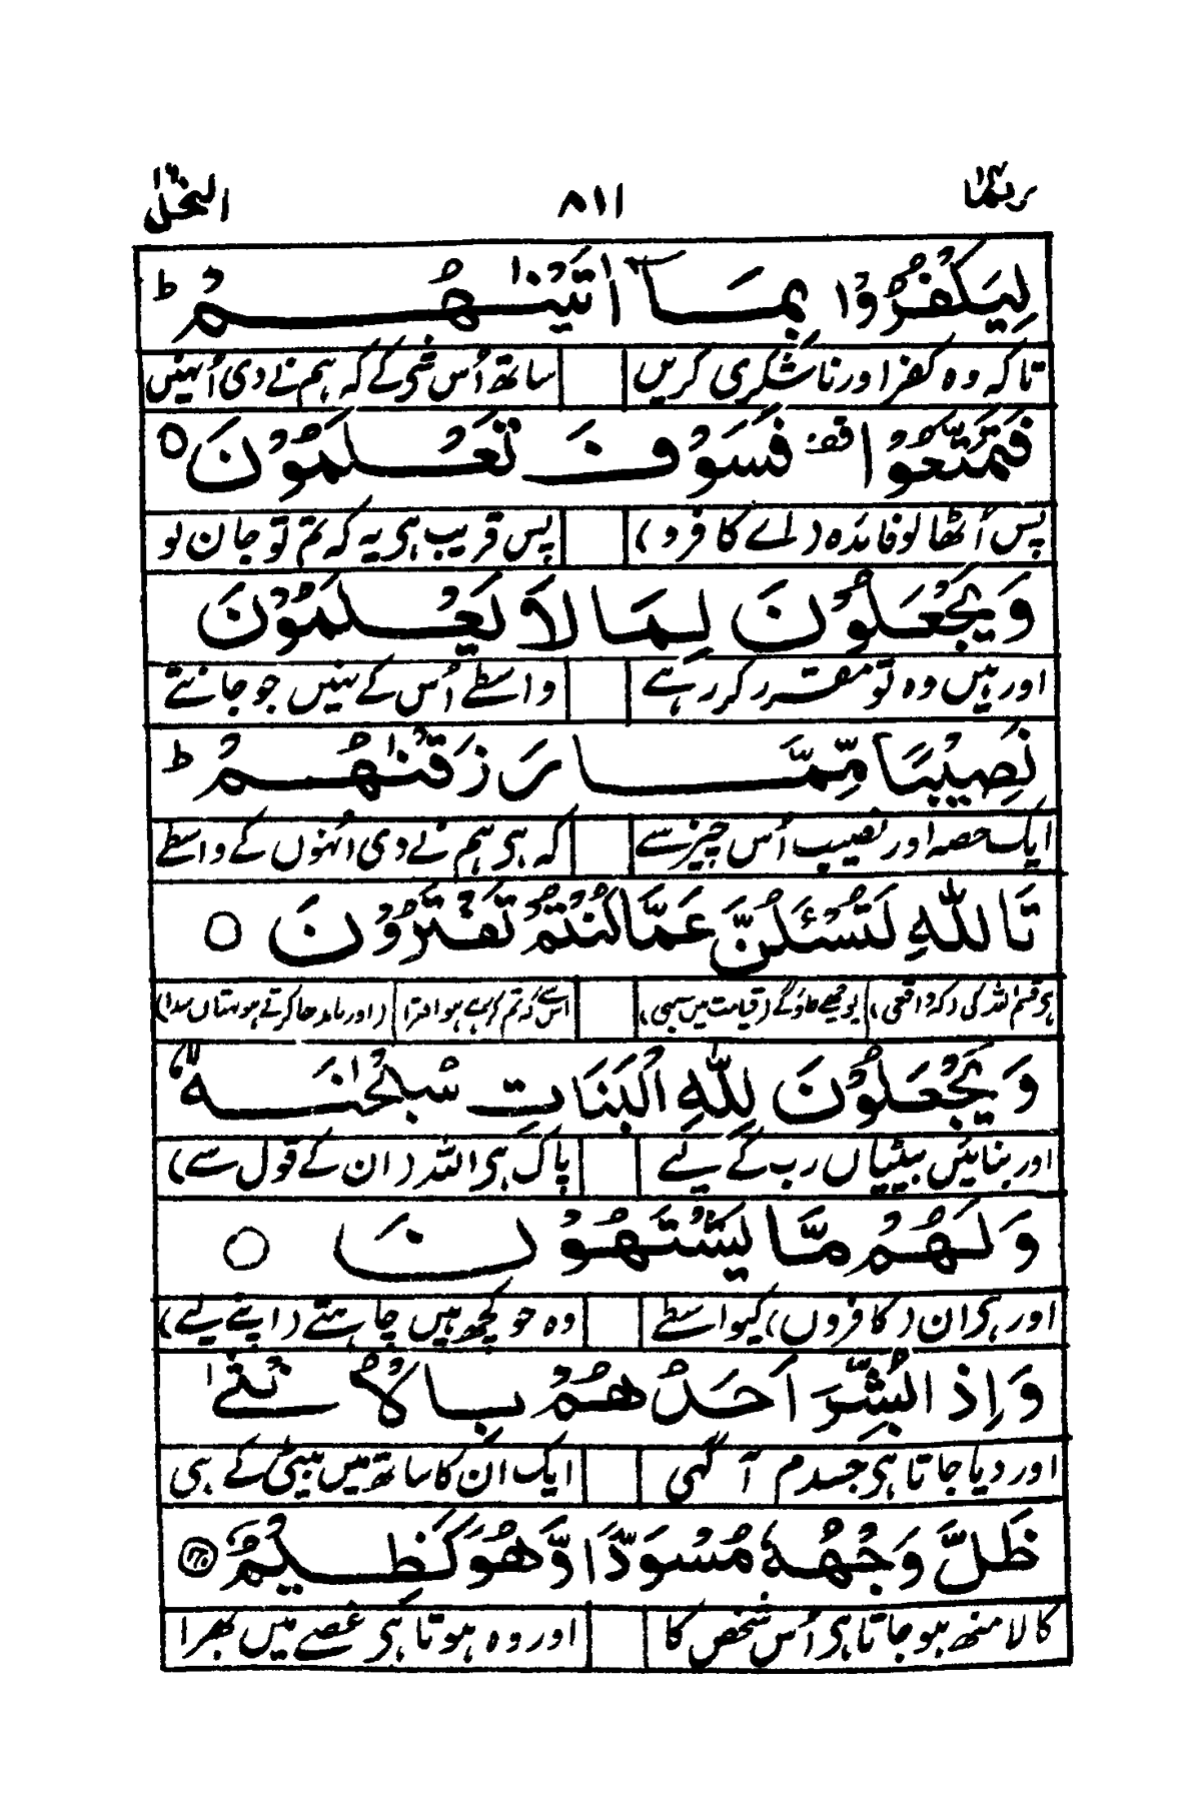 ربما ١٤ ٨١١ النحل ١٦
لِيَكْفُرُوْا بِمَآ اٰتَيْنٰهُمْ ؕ
تاکہ وہ کفر اور ناشکری کریں ساتھ اُس شی کے کہ ہم نے دی اُنہیں
فَتَمَتَّعُوْا قف فَسَوْفَ تَعْلَمُوْنَ ○
پس اُٹھا لو فائدہ (اے کافرو) پس قریب ہی یہ کہ تم تو جان لو
وَيَجْعَلُوْنَ لِمَا لَا يَعْلَمُوْنَ
اور ہیں وہ تو مقرر کر رہے واسطے اُس کے نہیں جو جانتے
نَصِيْبًا مِّمَّا رَزَقْنٰهُمْ ؕ
ایک حصہ اور نصیب اُس چیز سے کہ ہی ہم نے دی اُنہوں کے واسطے
تَاللّٰهِ لَتُسْـَٔلُنَّ عَمَّا كُنْتُمْ تَفْتَرُوْنَ ○
ہی قسم اللہ کی (قیامت میں سبھی) (اور
وَيَجْعَلُوْنَ لِلّٰهِ الْبَنَاتِ سُبْحٰنَهٗ ۙ
اور بنائیں بیٹیاں رب کے لیے پاک ہی اللہ (ان کے قول سے)
وَلَهُمْ مَّا يَشْتَهُوْنَ ○
اور ہی ان (کافروں) کیواسطے وہ جو کچھ ہیں چاہتے (اپنے لیے)
وَاِذَا بُشِّرَ اَحَدُهُمْ بِالْاُنْثٰى
اور دیا جاتا ہی جسدم آگہی ایک ان کا ساتھ میں بیٹی کے ہی
ظَلَّ وَجْهُهٗ مُسْوَدًّا وَّهُوَ كَظِيْمٌ
کالا منھ ہو جاتا ہی اُس شخص کا اور وہ ہوتا ہی غصے میں بھرا